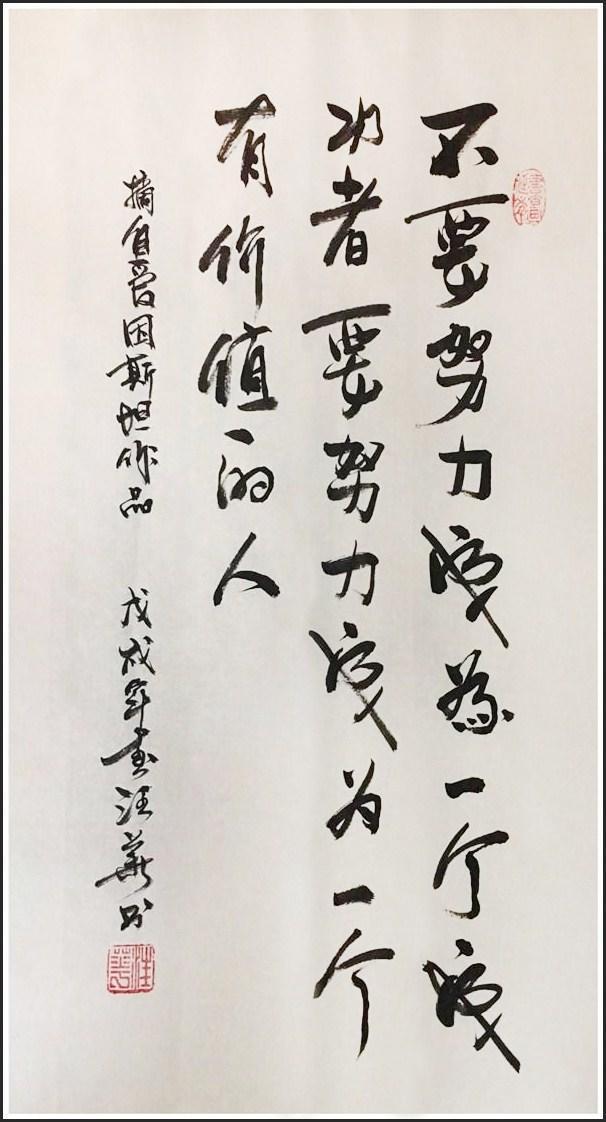 不要努力成為一个成
功者要努力成为一个
有价值的人
摘自爱因斯坦作品 戊戌年 汪華书